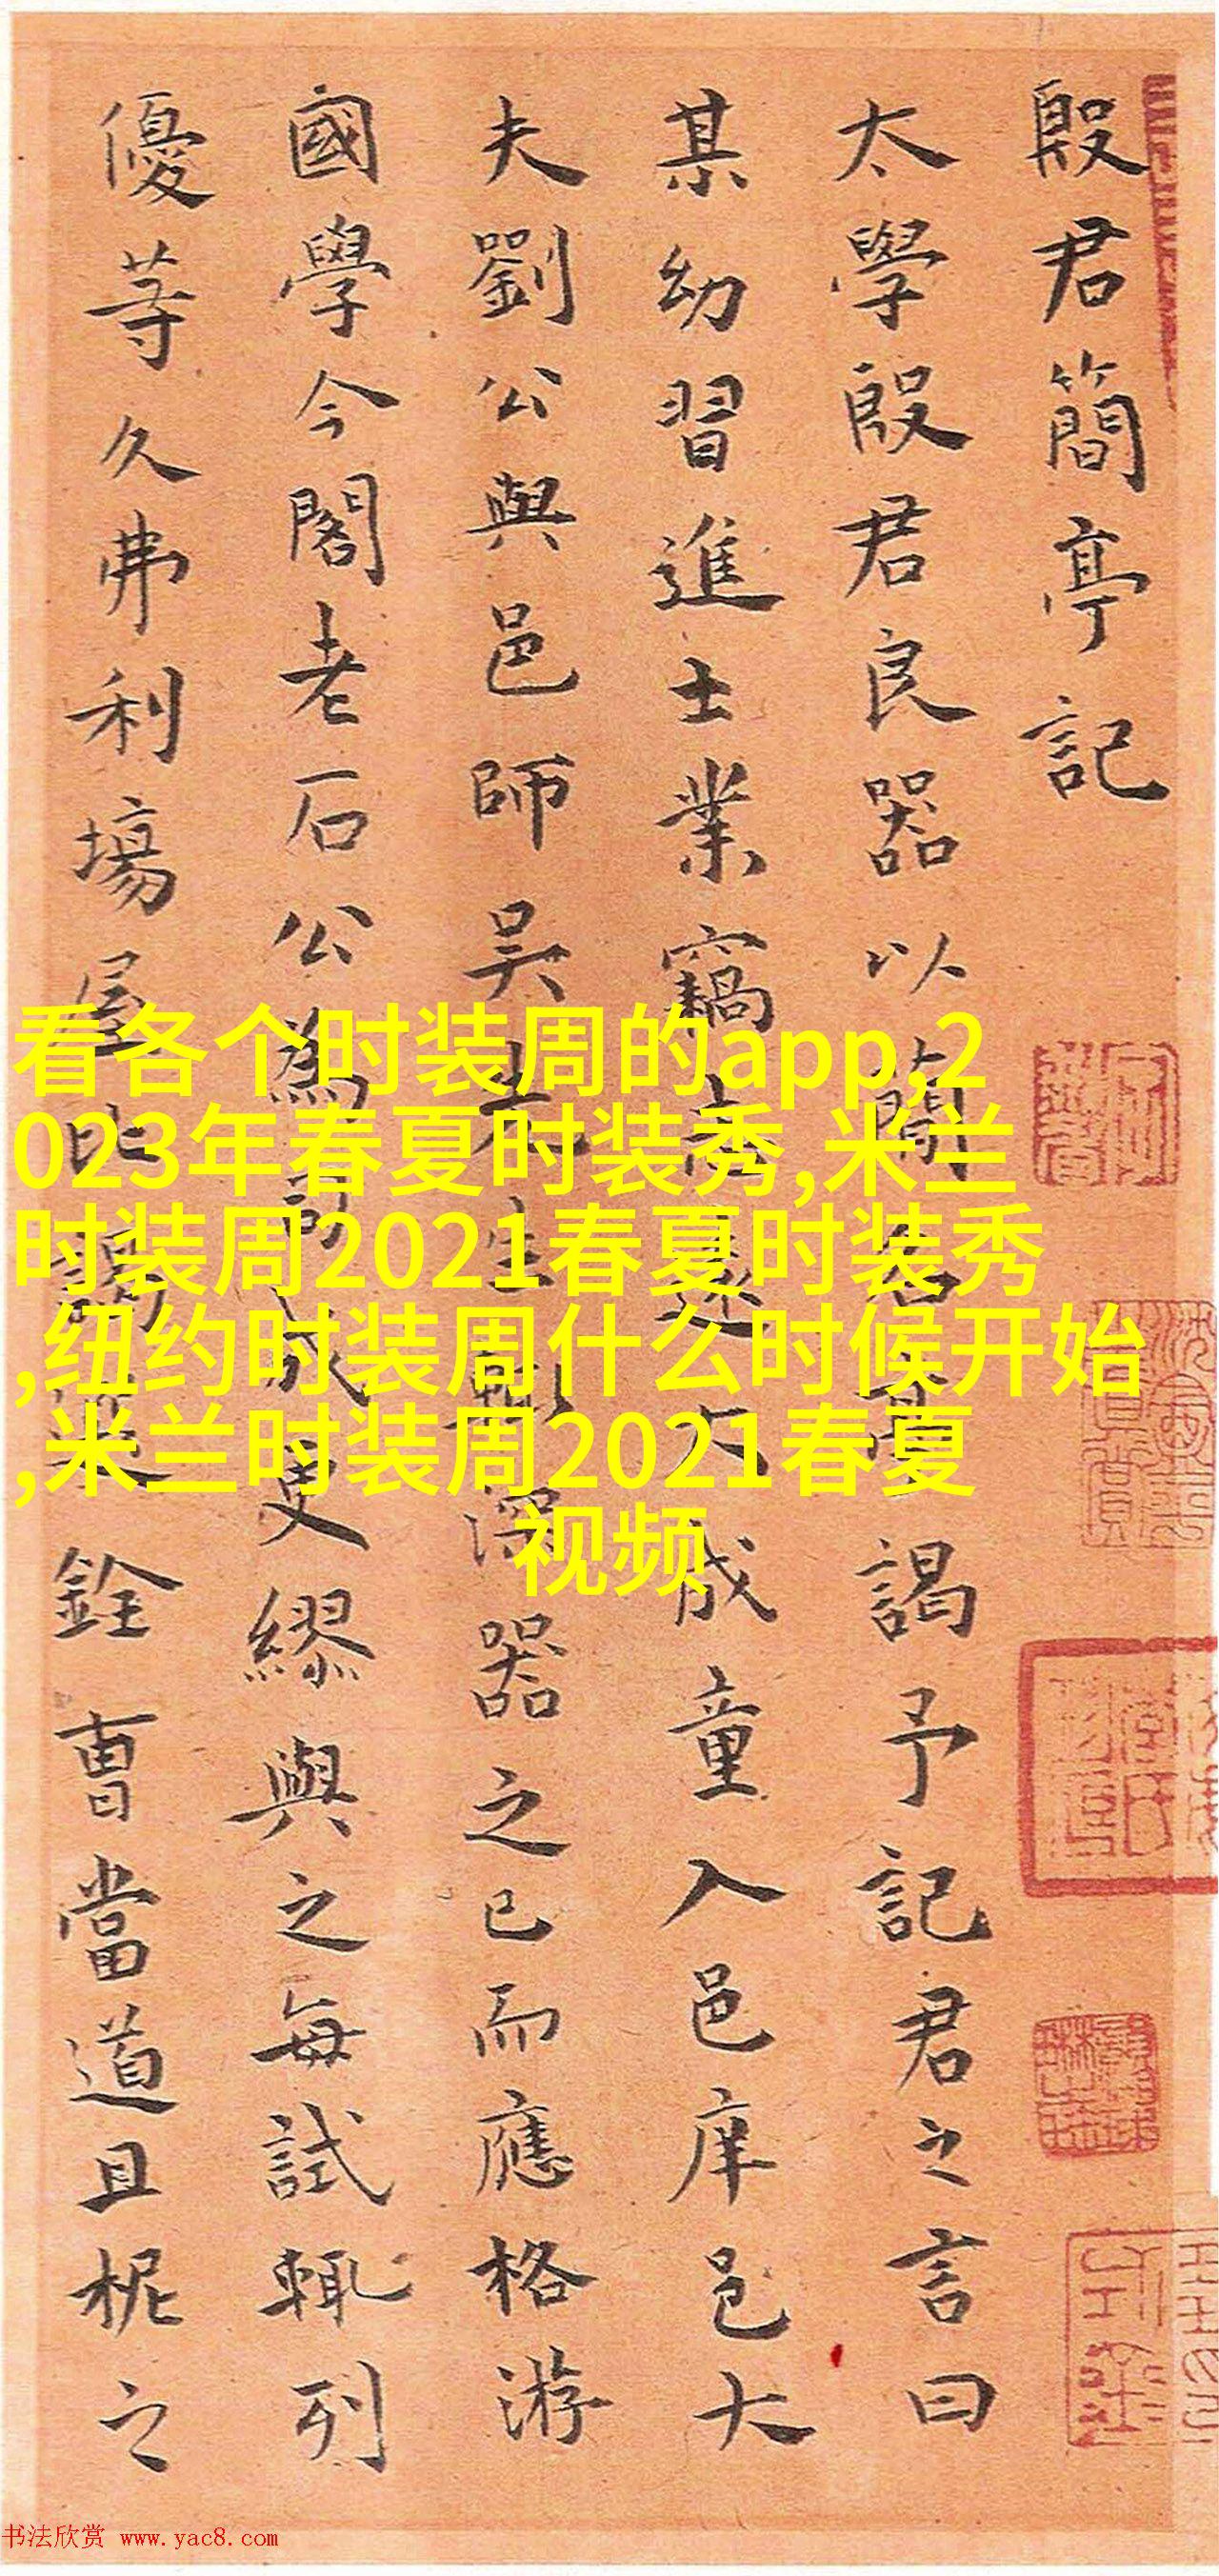 殷君簡亭記
太學殷君良器以簡名亭謁予記君之言曰
某幼習進士業竊大成童入邑庠邑大
夫劉公與邑師吳先生深器之已而應格游
國學今閣老石公為司成叟繆與之每試輒列
優等久弗利場屋比謁選銓曹當道且柅之
看各个时装周的app,2
023年春夏时装秀,米兰
时装周2021春夏时装秀
,纽约时装周什么时候开始
,米兰时装周2021春夏
视频
书法欣赏 www.yac8.com